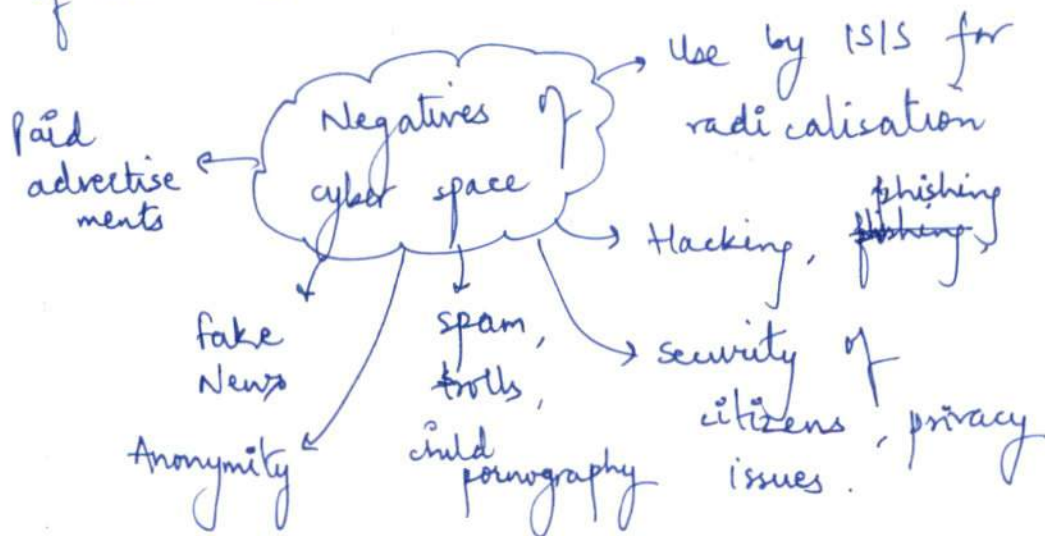 Negatives of
cyber space
Use by ISIS for
radicalisation
Paid
advertise
ments
phishing
Hacking, phishing,
fake
News
spam,
trolls,
child
pornography
security of
citizens, privacy
issues.
Anonymity